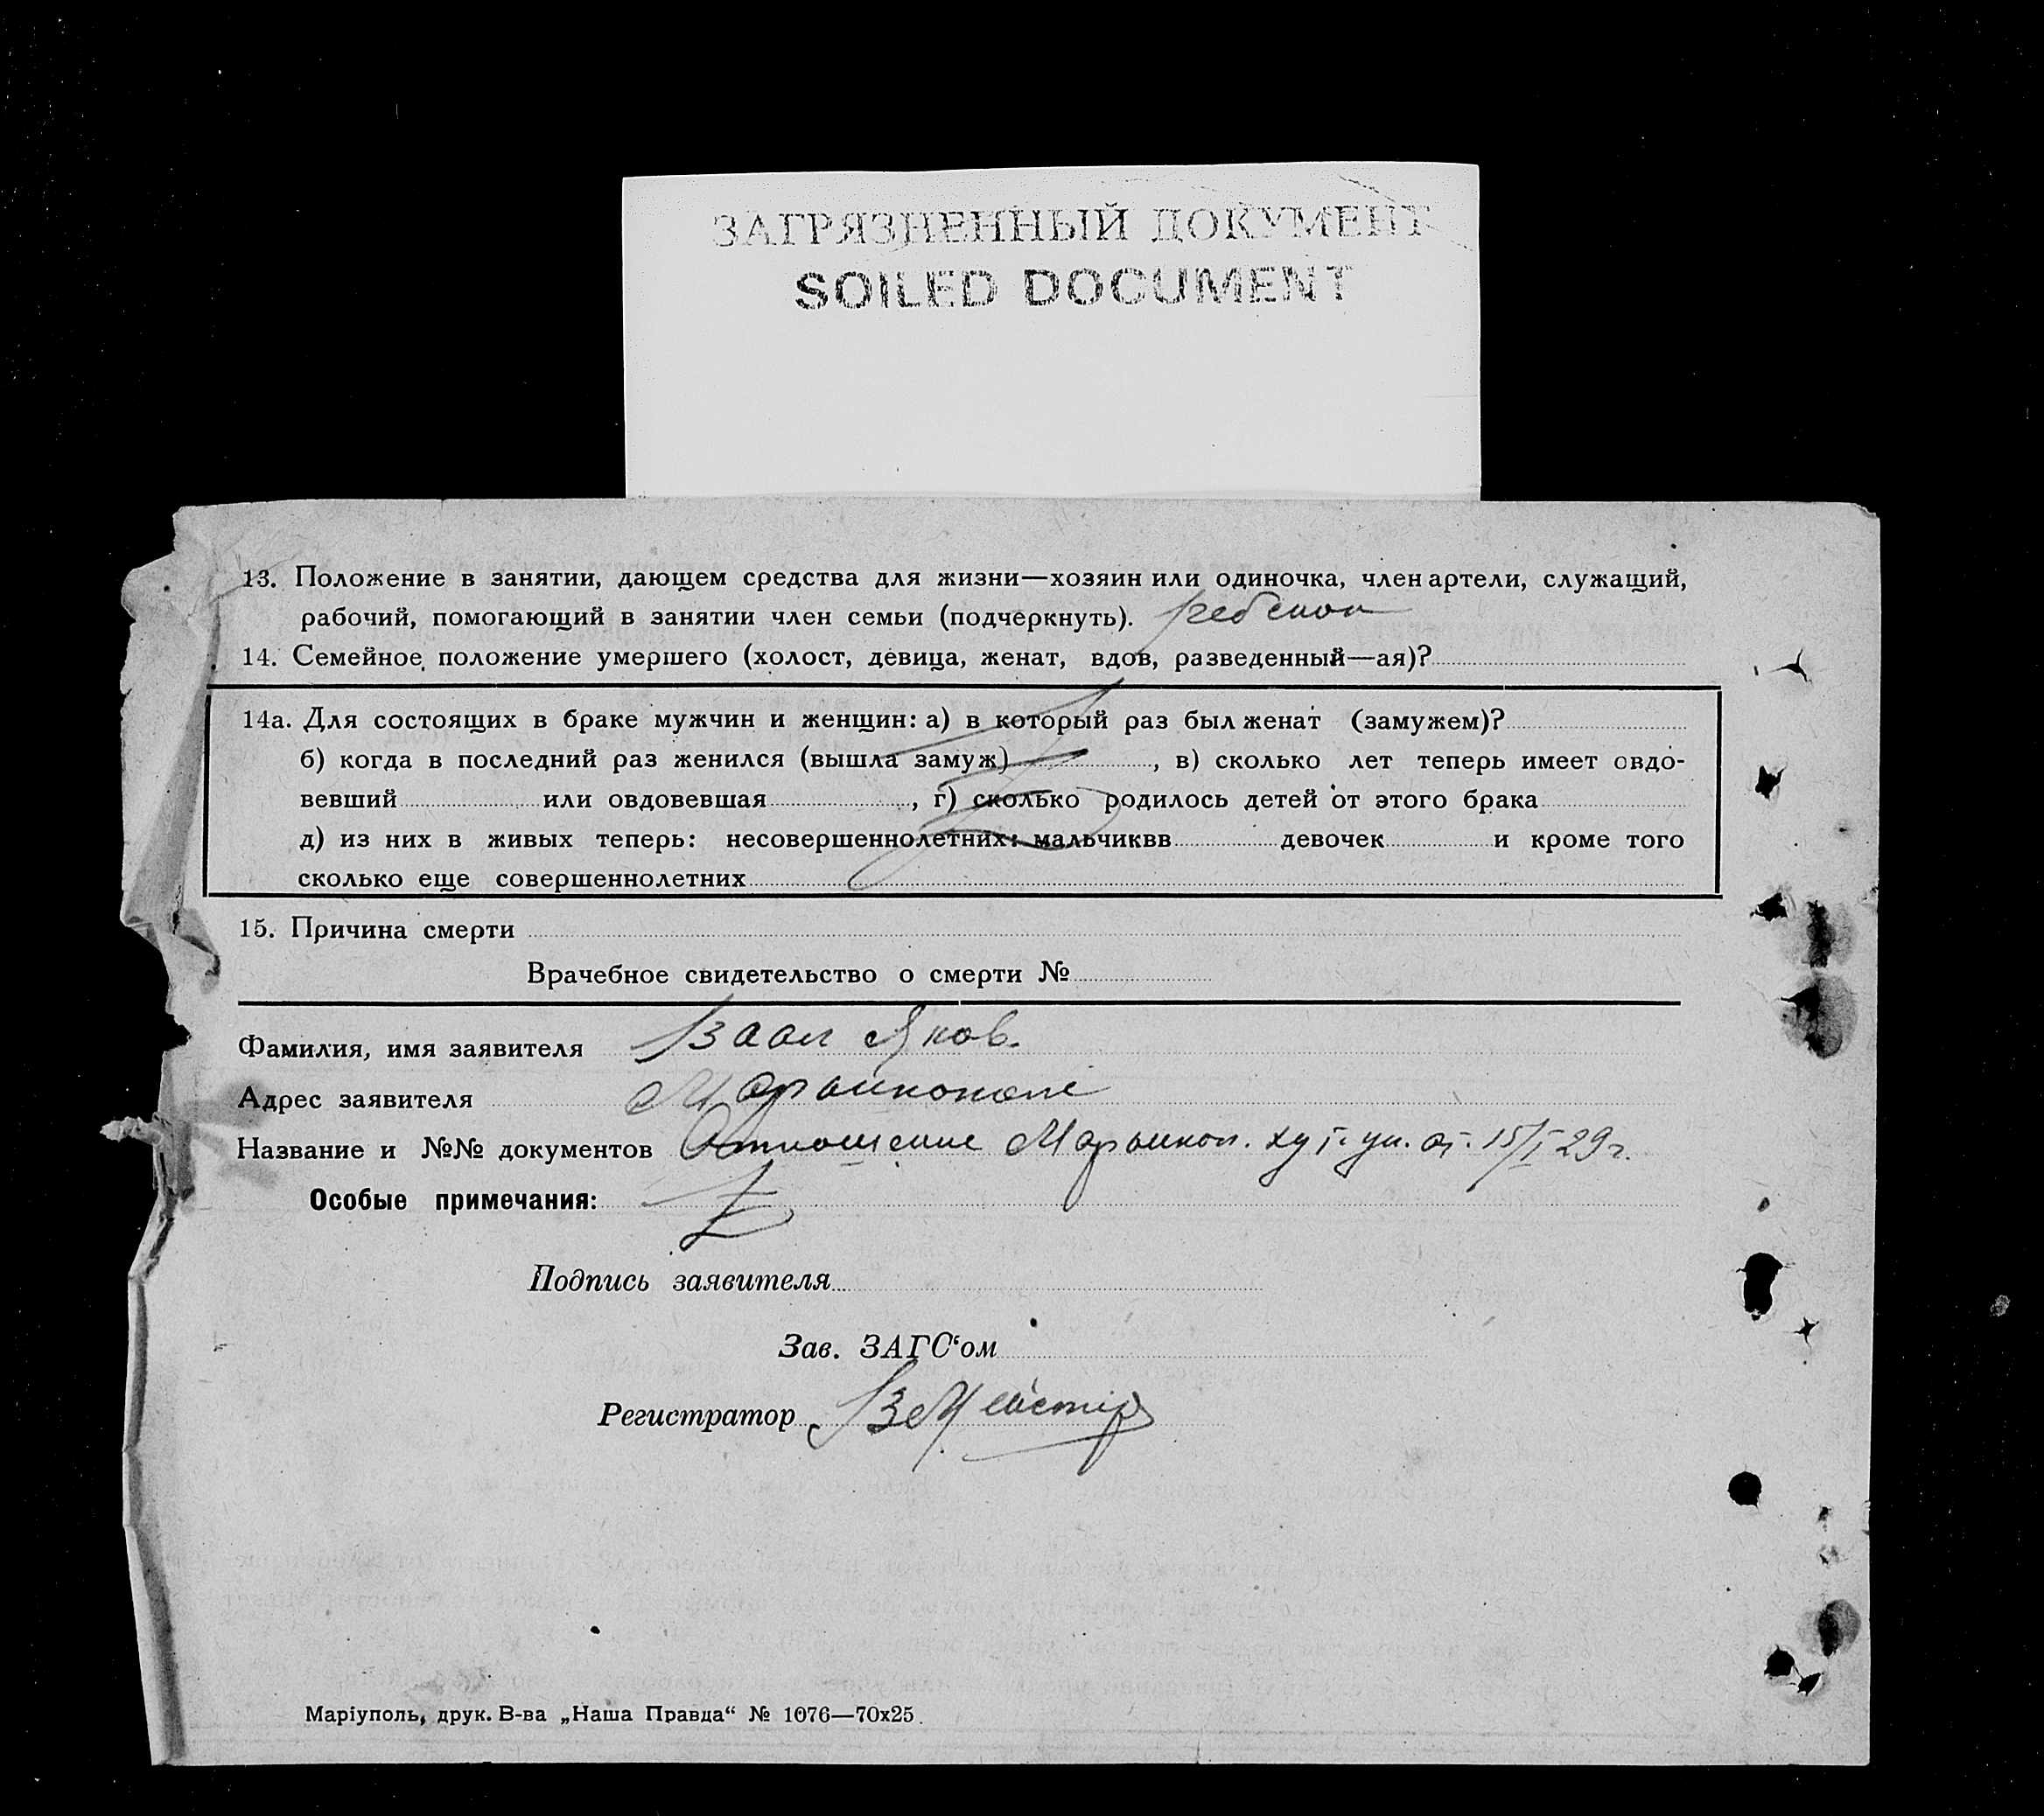 ЗАГРЯЗНЕННЫЙ ДОКУМЕНТ
SOILED DOCUMENT
13. Положение в занятии, дающем средства для жизни—хозяин или одиночка, член артели, служащий,
рабочий, помогающий в занятии член семьи (подчеркнуть). ребенок
14. Семейное положение умершего (холост, девица, женат, вдов, разведенный—ая)?
14а. Для состоящих в браке мужчин и женщин: а) в который раз был женат (замужем)?
б) когда в последний раз женился (вышла замуж) , в) сколько лет теперь имеет овдо-
вевший или овдовевшая , г) сколько родилось детей от этого брака
д) из них в живых теперь: несовершеннолетних: мальчиквв девочек и кроме того
сколько еще совершеннолетних
15. Причина смерти
Врачебное свидетельство о смерти №
Фамилия, имя заявителя Ваал Яков.
Адрес заявителя Марьинополе
Название и №№ документов Отношение Марьиноп. от 15/I 29 г.
Особые примечания:
Подпись заявителя
Зав. ЗАГС‘ом
Регистратор
Маріуполь, друк. В-ва „Наша Правда“ № 1076—70х25.